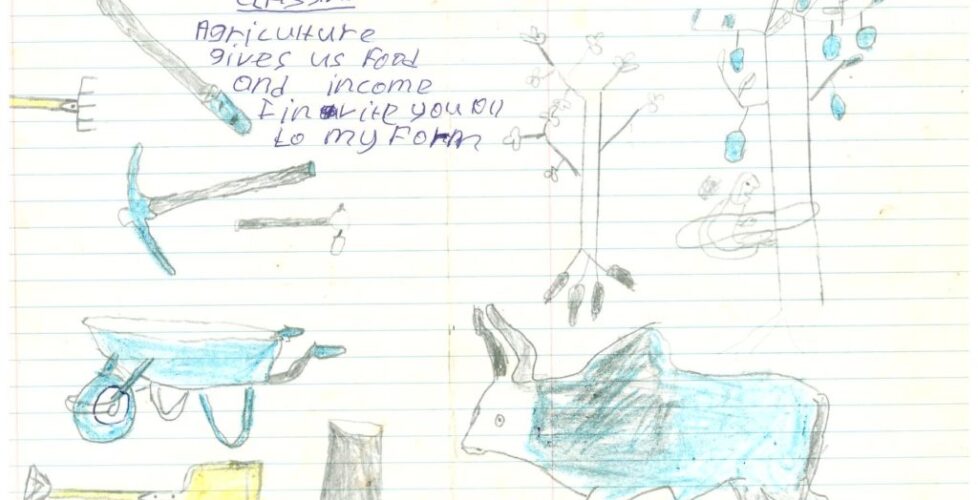 Agriculture
gives us food
and income
I invite you all
to my Form